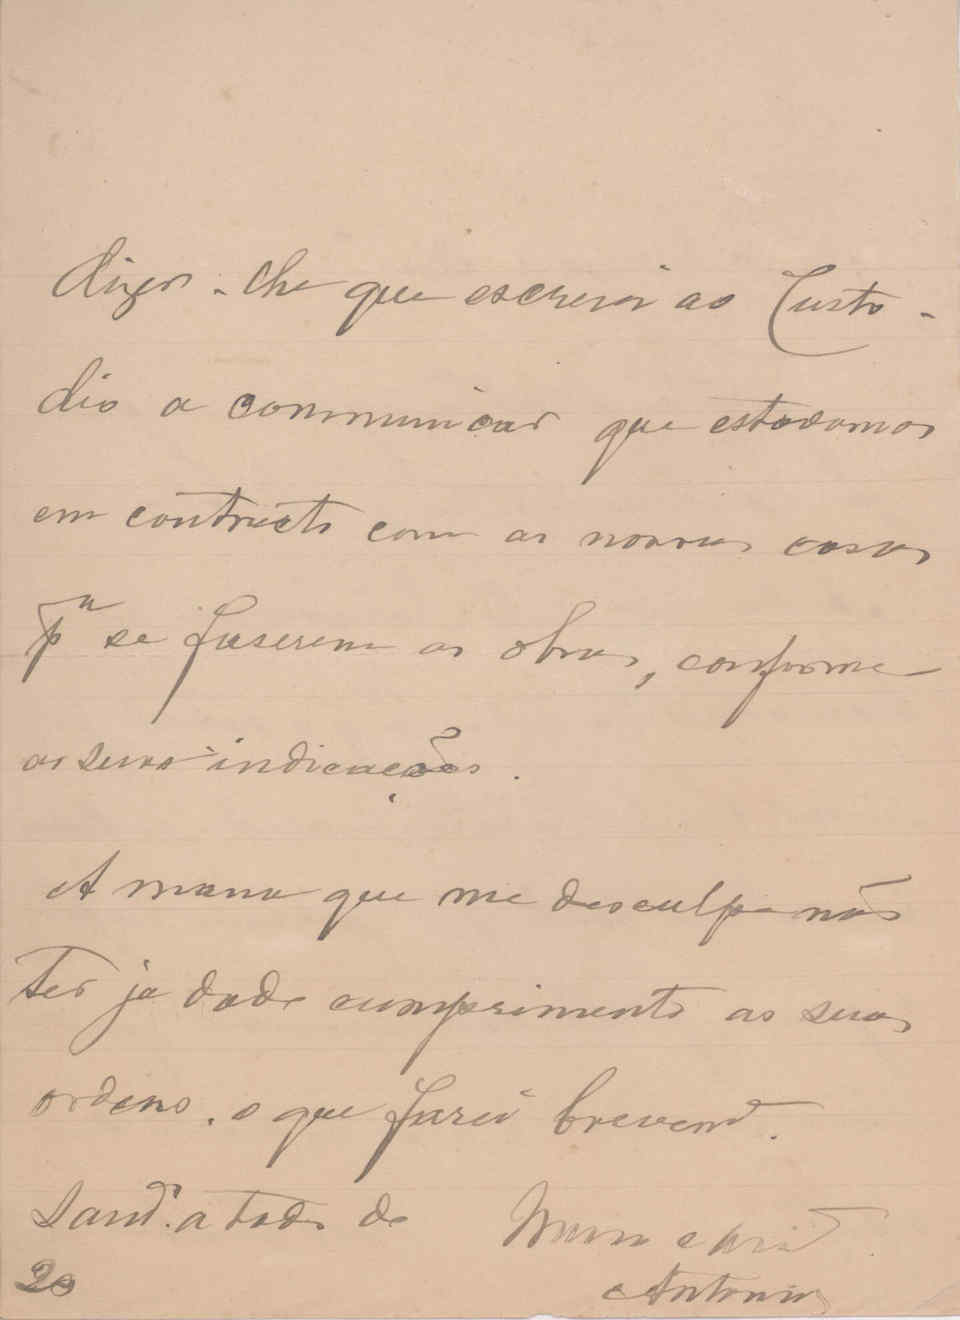 dizer-lhe que escrevi ao Custo-
dio a communicar que estavamos
em contracto com as novas casas
pª se faserem as obras, conforme
as suas indicações.
A mana que me desculpe não
ter ja dado cumprimento as suas
ordens. o que farei brevem.te
Saud.s a todos do
Mano e
Antonio
20